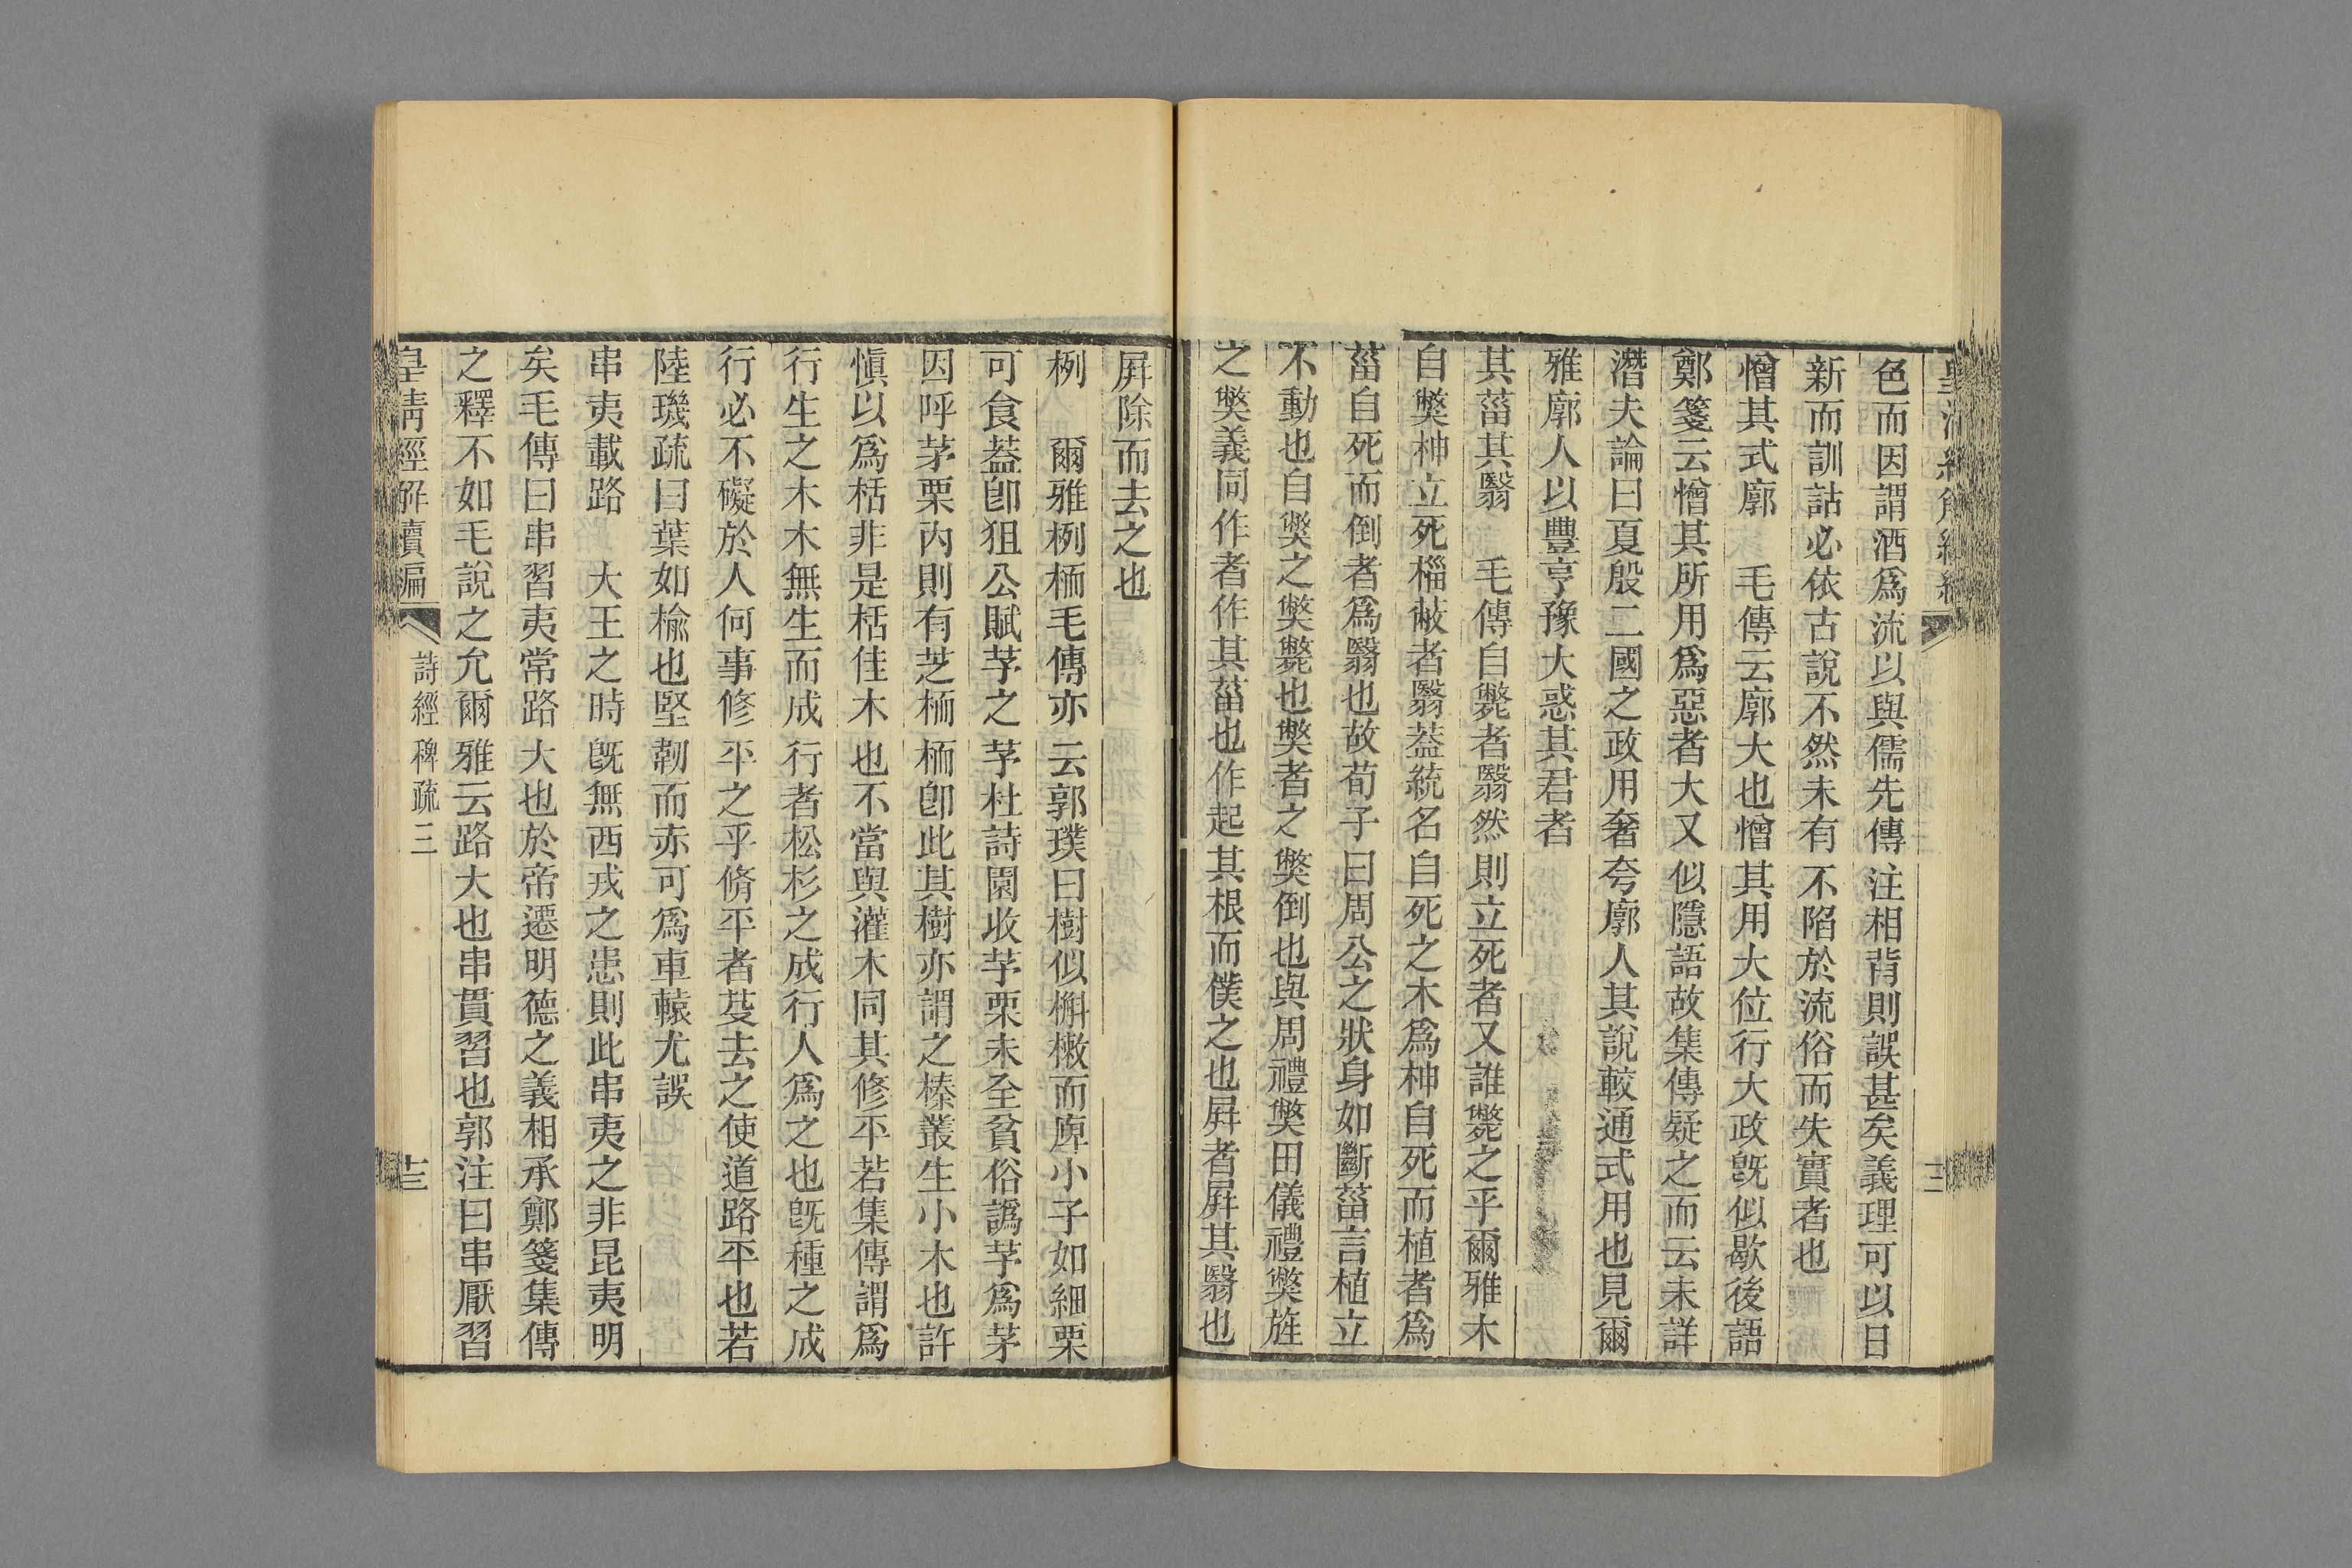 色而因謂酒爲流以與儒先傳注相背則誤甚矣義理可以日
新而訓詁必依古說不然未有不陷於流俗而失實者也
憎其式廓　毛傳云廓大也憎其用大位行大政旣似歇後語
鄭箋云憎其所用爲惡者大又似隱語故集傳疑之而云未詳
潛夫論曰夏殷二國之政用奢夸廓人其說較通式用也見爾
雅廓人以豐亨豫大惑其君者
其菑其翳　毛傳自斃者翳然則立死者又誰斃之乎爾雅木
自獘柛立死椔蔽者翳葢統名自死之木爲柛自死而植者爲
菑自死而倒者爲翳也故荀子曰周公之狀身如斷菑言植立
不動也自獘之獘斃也獘者之獘倒也與周禮獘田儀禮獘旌
之獘義同作者作其菑也作起其根而僕之也屛者屛其翳也
屛除而去之也
栵　爾雅栵栭毛傳亦云郭璞曰樹似槲樕而庳小子如細栗
可食葢卽狙公賦芧之芧杜詩園收芧栗未至貧俗譌芧爲茅
因呼茅栗內則有芝栭栭卽此其樹亦謂之榛叢生小木也許
愼以爲栝非是栝佳木也不當與灌木同其修平若集傳謂爲
行生之木木無生而成行者松杉之成行人爲之也旣種之成
行必不礙於人何事修平之乎脩平者芟去之使道路平也若
陸璣疏曰葉如楡也堅韌而赤可爲車轅尤誤
串夷載路　大王之時旣無西戎之患則此串夷之非昆夷明
矣毛傳曰串習夷常路大也於帝遷明德之義相承鄭箋集傳
之釋不如毛說之允爾雅云路大也串貫習也郭注曰串厭習
皇淸經解續編　詩經稗疏三　十三